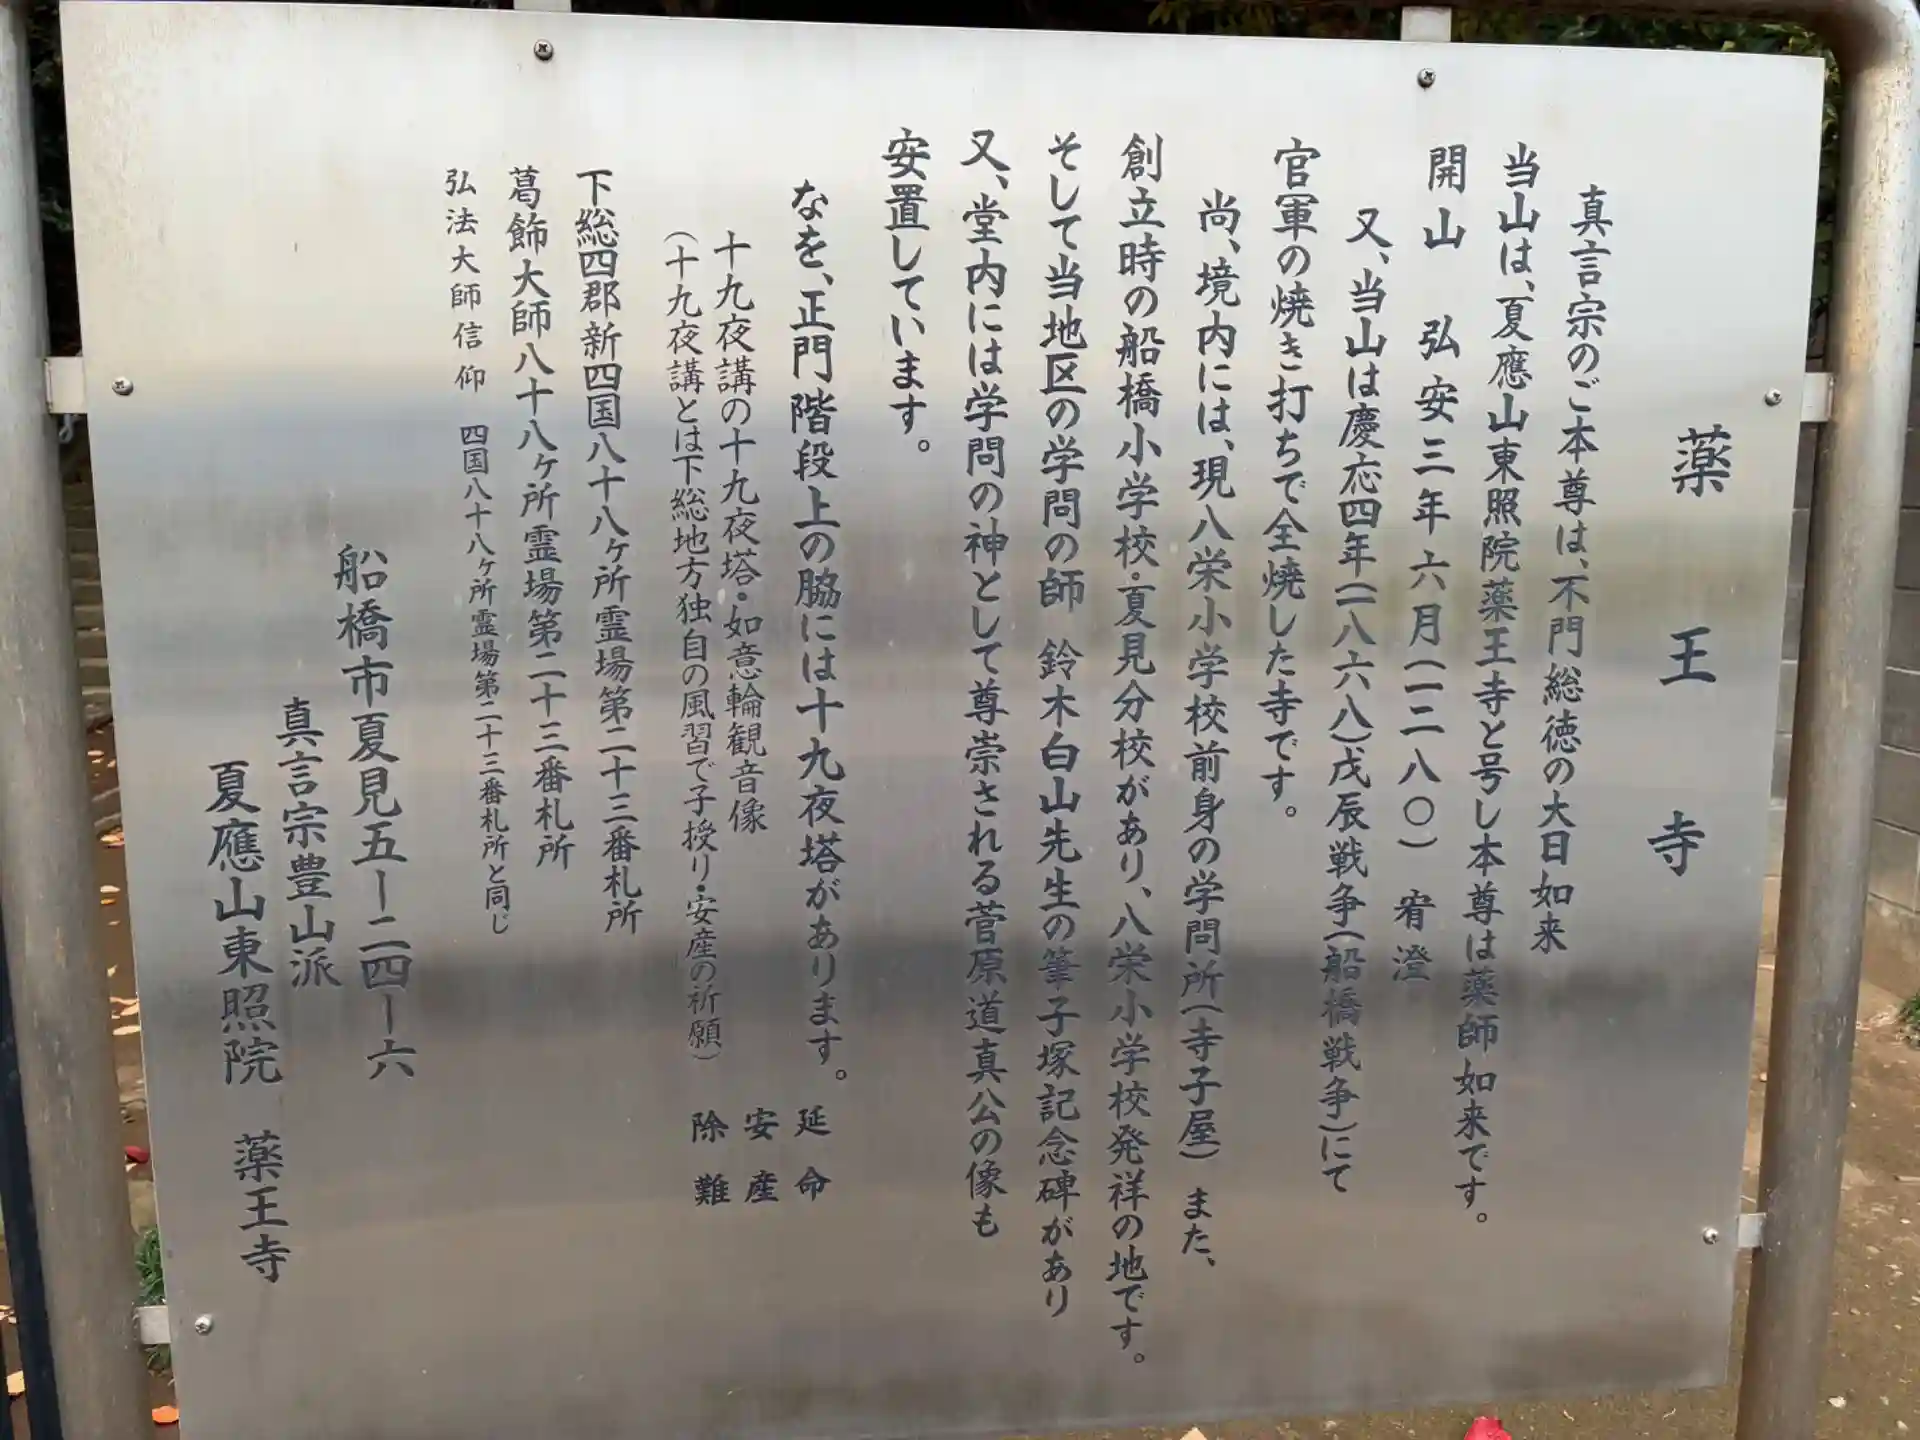 薬王寺
真言宗のご本尊は、不門総徳の大日如来
当山は、夏應山東照院薬王寺と号し本尊は薬師如来です。
開山 弘安三年六月(一二八〇) 宥澄
又、当山は慶応四年(一八六八)戊辰戦争(船橋戦争)にて
官軍の焼き打ちで全焼した寺です。
尚、境内には、現八栄小学校前身の学問所(寺子屋) また、
創立時の船橋小学校・夏見分校があり、八栄小学校発祥の地です。
そして当地区の学問の師 鈴木白山先生の筆子塚記念碑があり
又、堂内には学問の神として尊崇される菅原道真公の像も
安置しています。
なを、正門階段上の脇には十九夜塔があります。 延命
十九夜講の十九夜塔・如意輪観音像 安産
(十九夜講とは下総地方独自の風習で子授り・安産の祈願) 除難
下総四郡新四国八十八ヶ所霊場第二十三番札所
葛飾大師八十八ヶ所霊場第二十三番札所
弘法大師信仰 四国八十八ヶ所霊場第二十三番札所と同じ
船橋市夏見五ー二四ー六
真言宗豊山派
夏應山東照院 薬王寺